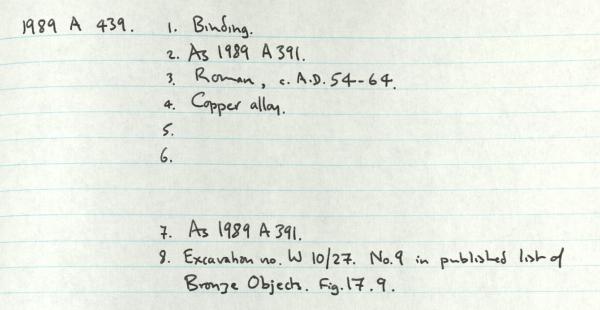 1989 A 439. 1. Binding.
2. As 1989 A 391.
3. Roman, c. A.D. 54-64.
4. Copper alloy.
5.
6.
7. As 1989 A 391.
8. Excavation no. W 10/27. No. 9 in published list of
Bronze Objects. Fig. 17.9.